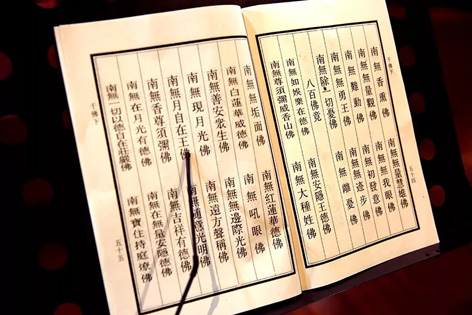 五十四
南無香熏佛　南無無量慧雄佛
南無無量觀佛　南無無我眼佛
南無難動佛　南無初發意佛
南無無勇王佛　南無進步佛
南無除一切憂佛　南無離憂佛
八百佛竟
南無如娛樂在德佛　南無安隱王德佛
南無須彌威香山佛　南無大種姓佛
南無無垢面佛　南無紅蓮華德佛
南無白蓮華威德佛　南無吼眼佛
南無善安眾生佛　南無無邊際光佛
南無現月光佛　南無遠方聲稱佛
南無月自在王佛　南無光明佛
南無香尊須彌佛　南無吉祥有德佛
南無在月光有德佛　南無在無量安隱德佛
南無一切以德自在莊嚴佛　南無寶住持庭燎佛
千佛下　五十五